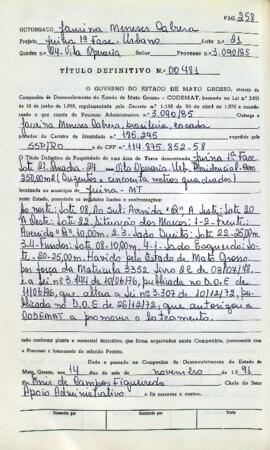 PÁG. 258
OUTORGADO Jacira Meneses Cabera
Projeto Juina 1ª Fase - Urbano Lote n.º 21
Quadra n.º 24 - Vila Operaria Setor Processo n.º 3.090/85
TÍTULO DEFINITIVO N.º 00481
O GOVERNO DO ESTADO DE MATO GROSSO, através da
Companhia de Desenvolvimento do Estado de Mato Grosso - CODEMAT, baseado na Lei n.º
de junho de regulamentada pelo Decreto n.º 1.138 de de abril de 1970, e tendo
o que consta do Processo Administrativo n.º 3090/85 Outorga a
Jacira Meneses Cabera, brasileira, casada
portador da Carteira de Identidade n.º 196.295 expedida pela
SSP/RO e do CPF n.º 114.875.852-58
O Título Definitivo de Propriedade de uma área de Terra denominada Juina 1ª Fase
Lote 21, Quadra 24 Vila Operaria Urb. Residencial com
250,00m2 (Duzentos e cincoenta metros quadrados)
localizada no município de Juina - MT
neste Estado, possuindo os seguintes limites e confrontações:
ao norte: Lote 08, Ao Sul: Avenida A Leste: Lote 20
A Oeste: Lote 22. Situação dos Marcos: 1-2 - Frente:
Avenida 10,00m. 2-3 - Lado Direito: Lote 22-25,00m.
3-4 - Fundos: Lote 08-10,00m. 4-1 - Lado Esquerdo: Lo-
te - 20-25,00m. Havido pelo Estado de Mato Grosso
por força da Matricula 3352 Livro 2 de 03/07/78,
e Lei nº 3.744 de 10/06/76, publicada no D.O.E de
11/06/76, que altera a Lei nº 3.307 de 10/12/72, pu-
blicada no D.O.E de 26/12/72, que autorizou a
CODEMAT a promover o loteamento.
tudo conforme planta e memorial descritivo, que ficam arquivados nesta Companhia, juntamente
com o Processo e loteamento do referido Projeto.
Dado e passado na Companhia de Desenvolvimento do Estado de
Mato Grosso, em 14 dias de novembro de 1991
Eu Enir de Campos Figueiredo Chefe do Setor
Apoio Administrativo o fiz escrever e assino.